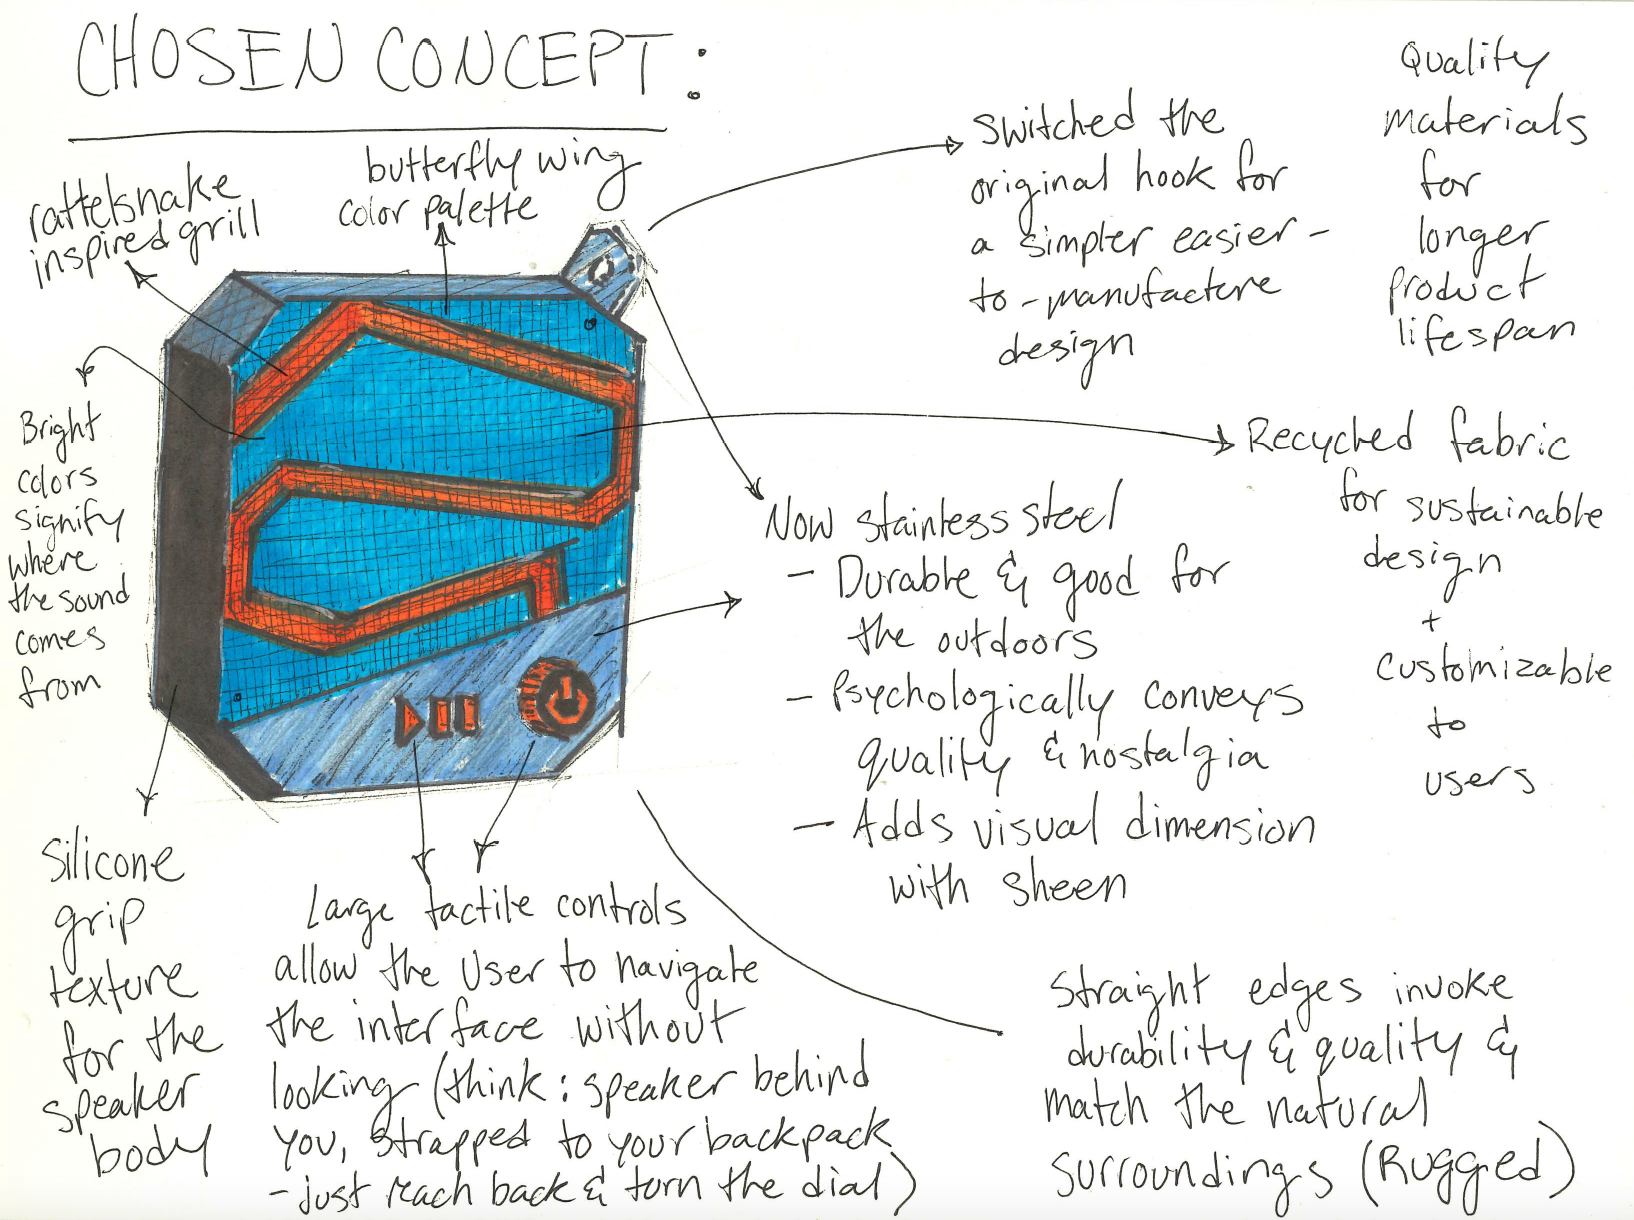 CHOSEN CONCEPT:
rattelsnake
inspired grill
butterfly wing
color palette
Switched the
original hook for
a simpler easier-
to-manufacture
design
Quality
materials
for
longer
product
lifespan
Bright
colors
signify
where
the sound
comes
from
Recycled fabric
for sustainable
design
+
customizable
to
users
Now stainless steel
- Durable & good for
the outdoors
- Psychologically conveys
quality & nostalgia
- Adds visual dimension
with sheen
Silicone
grip
texture
for the
speaker
body
Large tactile controls
allow the User to navigate
the interface without
looking (think: speaker behind
you, strapped to your backpack
- just reach back & turn the dial)
Straight edges invoke
durability & quality &
match the natural
surroundings (Rugged)